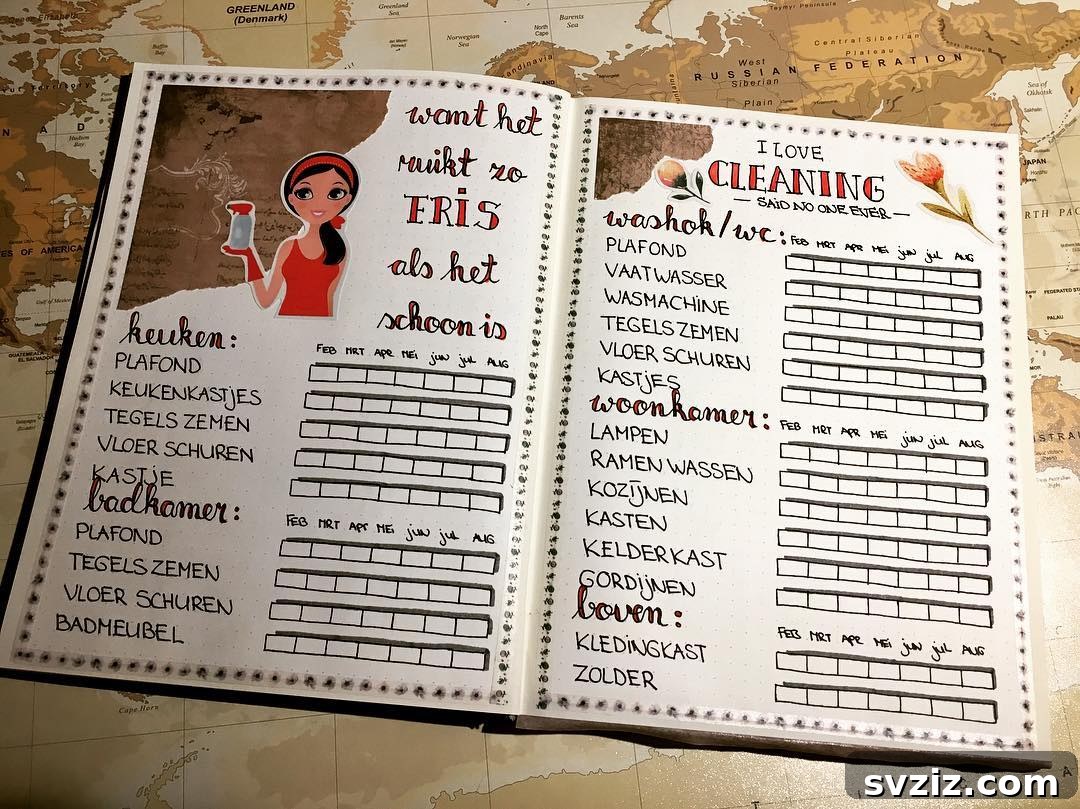 GREENLAND
(Denmark)
Greenland
Sea
Norwegian
Sea
Barents
Sea
North
Cape
Central Siberian
Plateau
West
Siberian
Plain
RUSSIAN FEDERATION
Sea of
Okhotsk
JAPAN
Hudson
Bay
Cape Horn
want het
ruikt zo
FRIS
als het
schoon is
keuken:
FEB MRT APR MEI jun jul AUG
PLAFOND
KEUKENKASTjES
TEGELS ZEMEN
VLOER SCHUREN
KASTjE
badkamer:
FEB MRT APR MEI jun jul AUG
PLAFOND
TEGELS ZEMEN
VLOER SCHUREN
BADMEUBEL
I LOVE
CLEANING
— SAID NO ONE EVER —
washok/wc:
FEB MRT APR MEI jun jul AUG
PLAFOND
VAATWASSER
WASMACHINE
TEGELS ZEMEN
VLOER SCHUREN
KASTjES
woonkamer:
FEB MRT APR MEI jun jul AUG
LAMPEN
RAMEN WASSEN
KOZIJNEN
KASTEN
KELDERKAST
GORDIjNEN
boven:
FEB MRT APR MEI jun jul AUG
KLEDINGKAST
ZOLDER
svziz.com